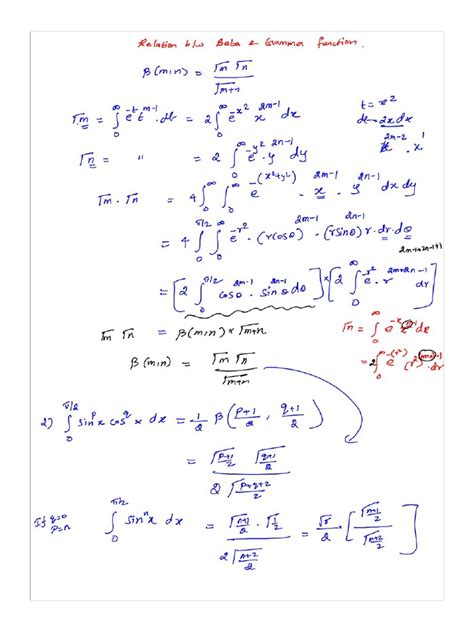 Relation b/w Beta & Gamma function.
β(m,n) = Γm Γn / Γm+n
Γm = ∫₀^∞ e^-t t^m-1 . dt = 2 ∫₀^∞ e^-x² x^2m-1 dx
t = x²
dt = 2x dx
x^2m-2 . x^1
Γn = " = 2 ∫₀^∞ e^-y² . y^2n-1 dy
Γm . Γn = 4 ∫₀^∞ ∫₀^∞ e^-(x²+y²) . x^2m-1 . y^2n-1 dx dy
= 4 ∫₀^π/2 ∫₀^∞ e^-r² . (r cosθ)^2m-1 . (r sinθ)^2n-1 r . dr . dθ
= [2 ∫₀^π/2 cosθ^2m-1 . sinθ^2n-1 dθ] × [2 ∫₀^∞ e^-r² . r^2m+2n-1 dr]
Γm Γn = β(m,n) × Γm+n
Γn = ∫₀^∞ e^-x x^n-1 dx
β(m,n) = Γm Γn / Γm+n
= 2 ∫₀^∞ e^-(r²) (r²)^m+n-1 . dr
2) ∫₀^π/2 sin^p x cos^q x dx = 1/2 β(p+1/2 , q+1/2)
= Γp+1/2 Γq+1/2 / 2 Γp+q+2/2
If q=0
p=n
∫₀^π/2 sin^n x dx = Γn+1/2 . Γ1/2 / 2 Γn+2/2 = √π/2 × [Γn+1/2 / Γn+2/2]